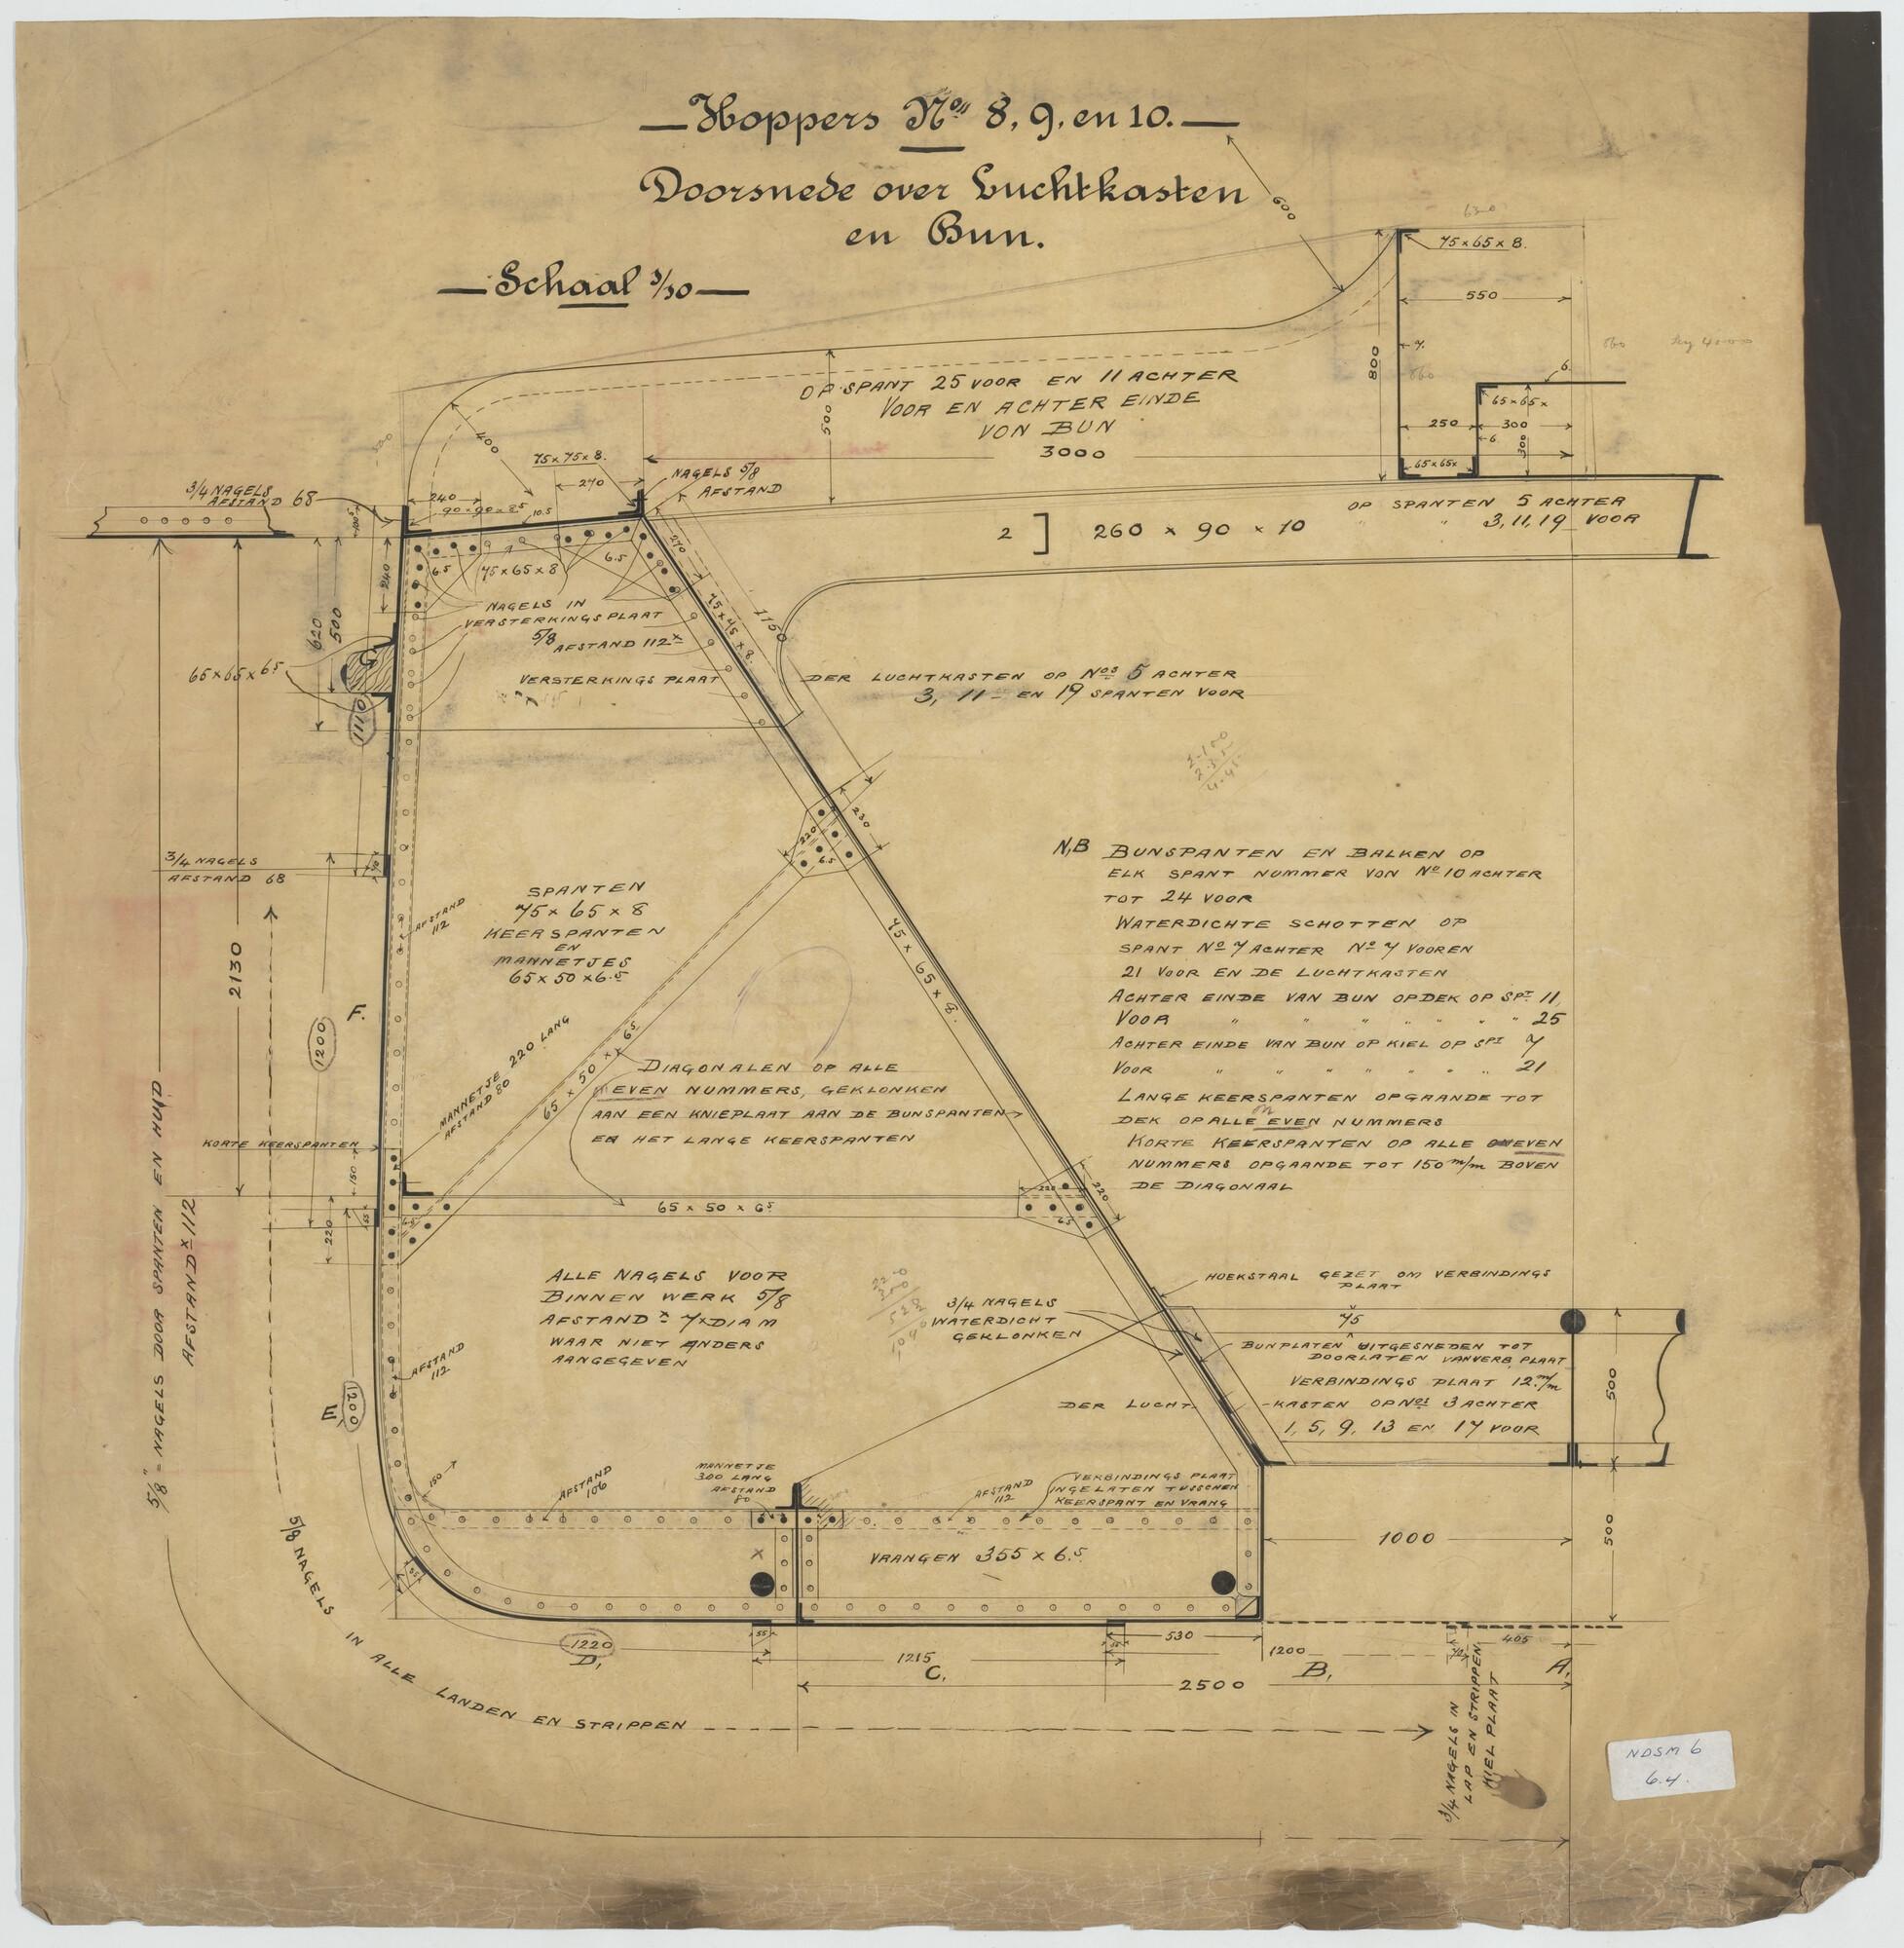 Hoppers Nos 8, 9, en 10.
Doorsnede over Luchtkasten
en Bun.
Schaal 1/10
600
630
75×65×8.
550
7.
800
860
6.
65×65×
250
300
6
300
65×65×
OP SPANT 25 VOOR EN 11 ACHTER
VOOR EN ACHTER EINDE
VON BUN
3000
500
400
75×75×8.
270
NAGELS 5/8
AFSTAND
3/4 NAGELS
AFSTAND 68
240
90×90×85
10.5
OP SPANTEN 5 ACHTER
" 3, 11, 19 VOOR
2 ] 260 × 90 × 10
240
6.5
75×65×8
6.5
270
NAGELS IN
VERSTERKINGSPLAAT
5/8 AFSTAND 112×
75×75×8.
1150
620
500
65×65×65
VERSTERKINGS PLAAT
DER LUCHTKASTEN OP Nos 5 ACHTER
3, 11 – EN 19 SPANTEN VOOR
1110
220
230
6.5
3/4 NAGELS
AFSTAND 68
AFSTAND
112
SPANTEN
75×65×8
KEERSPANTEN
EN
MANNETJES
65×50×6.5
75×65×8.
N,B BUNSPANTEN EN BALKEN OP
ELK SPANT NUMMER VON No 10 ACHTER
TOT 24 VOOR
WATERDICHTE SCHOTTEN OP
SPANT No 7 ACHTER No 7 VOOREN
21 VOOR EN DE LUCHTKASTEN
ACHTER EINDE VAN BUN OPDEK OP SPT 11,
VOOR " " " " " " " 25
ACHTER EINDE VAN BUN OP KIEL OP SPT 7
VOOR " " " " " " " 21
LANGE KEERSPANTEN OPGAANDE TOT
DEK OP ALLE on EVEN NUMMERS
KORTE KEERSPANTEN OP ALLE ONEVEN
NUMMERS OPGAANDE TOT 150 m/m BOVEN
DE DIAGONAAL
2130
F.
1200
MANNETJE 220 LANG
AFSTAND 80
65×50×6.5
DIAGONALEN OP ALLE
EVEN NUMMERS, GEKLONKEN
AAN EEN KNIEPLAAT AAN DE BUNSPANTEN
EN HET LANGE KEERSPANTEN
KORTE KEERSPANTEN
150
220
65×50×6.5
220
220
6.5
5/8" NAGELS DOOR SPANTEN EN HUID
AFSTAND × 112
ALLE NAGELS VOOR
BINNEN WERK 5/8
AFSTAND × 7×DIAM
WAAR NIET ANDERS
AANGEGEVEN
3/4 NAGELS
WATERDICHT
GEKLONKEN
HOEKSTAAL GEZET OM VERBINDINGS
PLAAT
75
BUNPLATEN UITGESNEDEN TOT
DOORLATEN VANVERB, PLAAT
VERBINDINGS PLAAT 12 m/m
DER LUCHT-KASTEN OP Nos 3 ACHTER
1, 5, 9, 13 EN 17 VOOR
500
AFSTAND
112
E,
1200
150
AFSTAND
106
MANNETJE
300 LANG
AFSTAND
80
AFSTAND
112
VERBINDINGS PLAAT
INGELATEN TUSSCHEN
KEERSPANT EN VRANG
VRANGEN 355×6.5
1000
500
5/8 NAGELS IN ALLE LANDEN EN STRIPPEN
1220
D,
55
1215
C,
530
1200
B,
405
A,
2500
3/4 NAGELS IN
LAP EN STRIPPEN
KIEL PLAAT
NDSM 6
6.4.